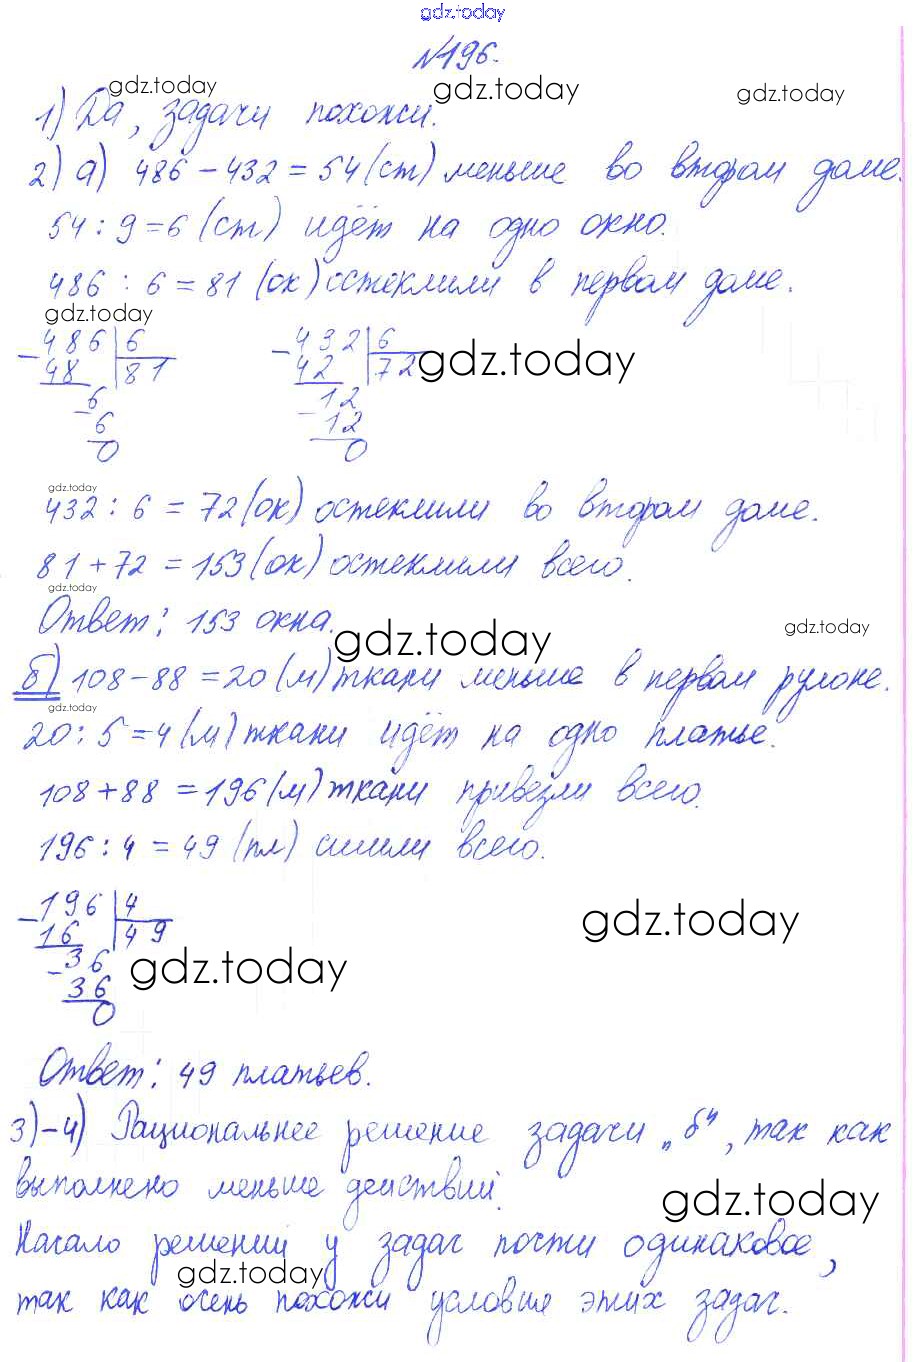 gdz.today
№196.
gdz.today gdz.today gdz.today
1) Да, задачи похожи.
2) а) 486 - 432 = 54 (ст) меньше во втором доме.
54 : 9 = 6 (ст) идёт на одно окно.
486 : 6 = 81 (ок) остеклили в первом доме.
gdz.today
- 486 | 6 - 432 | 6
48 | 81 42 | 72 gdz.today
- 6 - 12
6 12
0 0
gdz.today
432 : 6 = 72 (ок) остеклили во втором доме.
81 + 72 = 153 (ок) остеклили всего.
gdz.today
Ответ: 153 окна. gdz.today gdz.today
б) 108 - 88 = 20 (м) ткани меньше в первом рулоне.
gdz.today
20 : 5 = 4 (м) ткани идёт на одно платье.
108 + 88 = 196 (м) ткани привезли всего.
196 : 4 = 49 (пл) сшили всего.
- 196 | 4
16 | 49 gdz.today
- 36 gdz.today
36
0
Ответ: 49 платьев.
3)-4) Рациональнее решение задачи „б", так как
выполнено меньше действий.
gdz.today
Начало решений у задач почти одинаковое,
gdz.today
так как очень похожи условие этих задач.